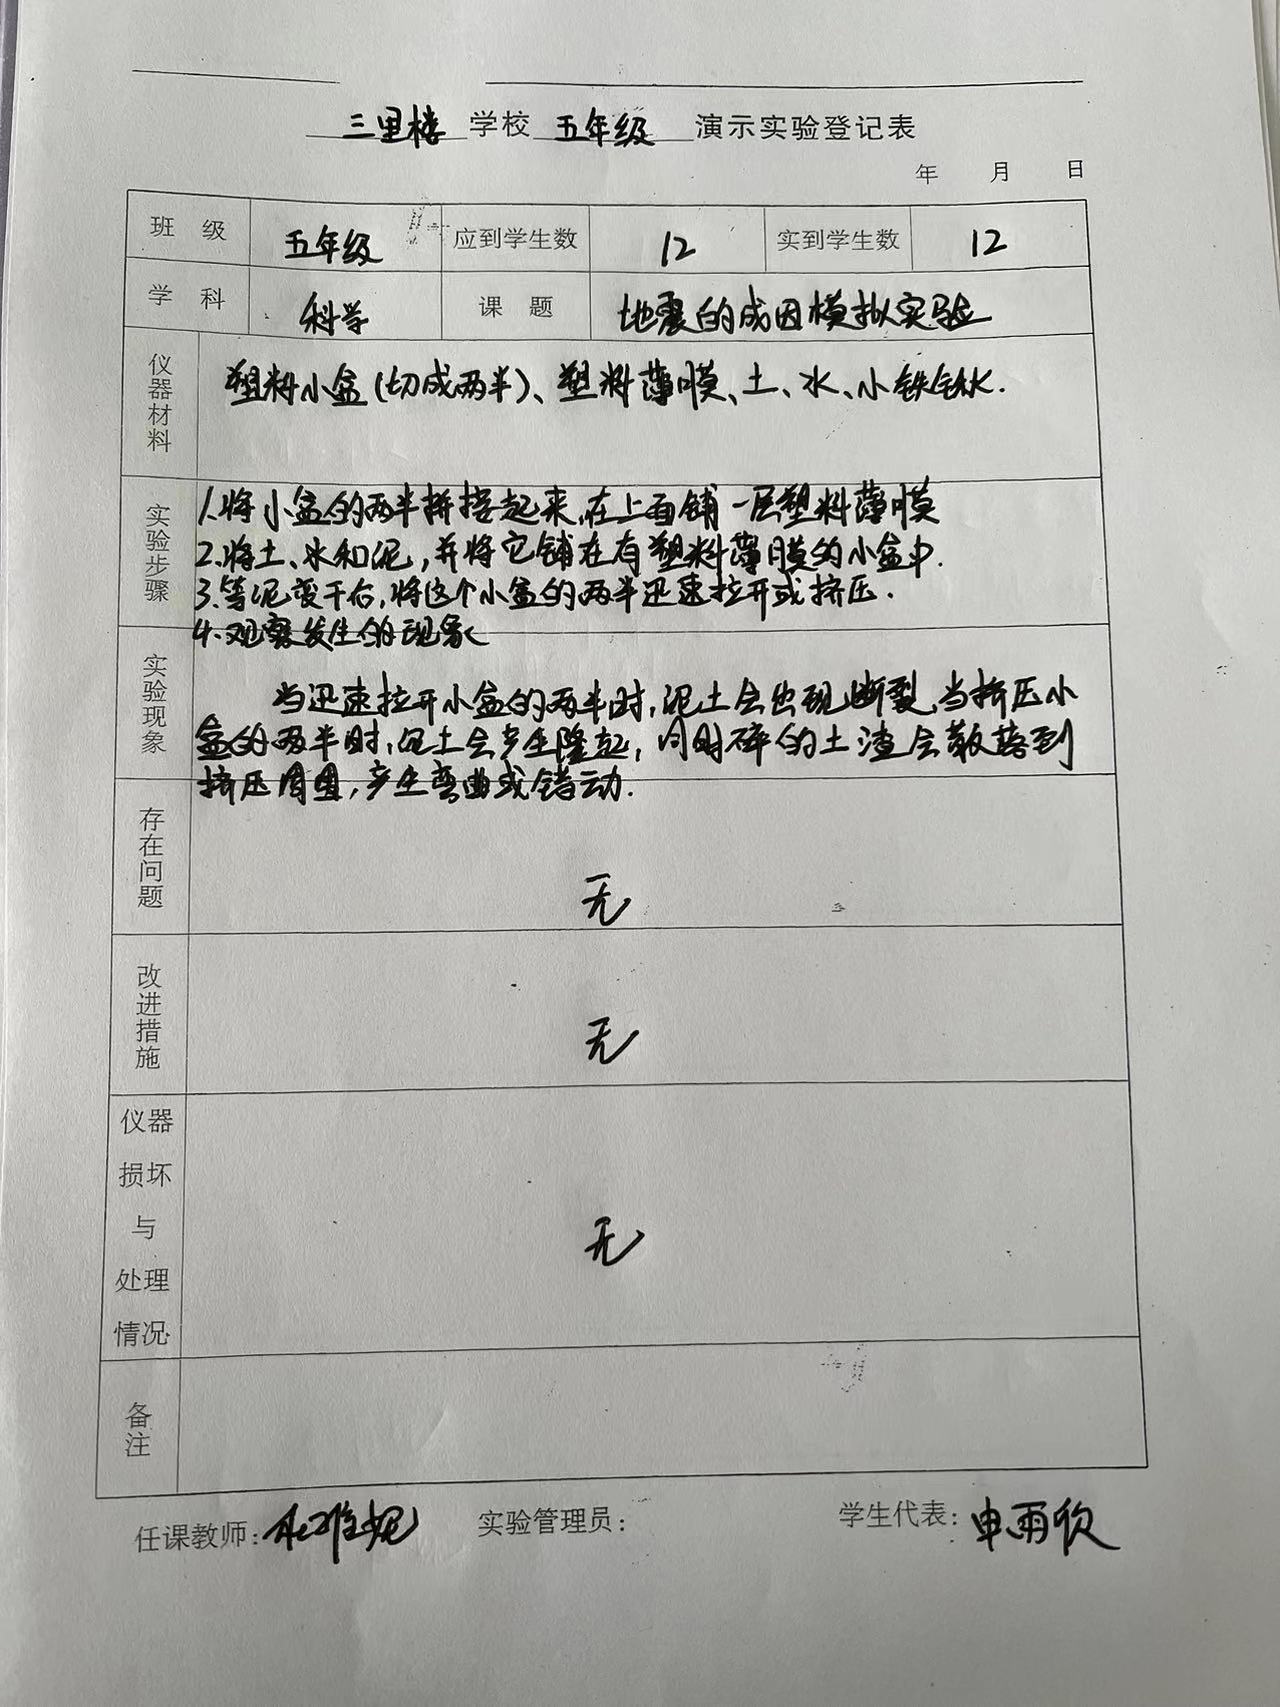 三里楼 学校 五年级 演示实验登记表
年 月 日
班 级 五年级 应到学生数 12 实到学生数 12
学 科 科学 课 题 地震的成因模拟实验
仪器材料 塑料小盆(切成两半)、塑料薄膜、土、水、小铁锹.
实验步骤
1.将小盆的两半拼接起来,在上面铺一层塑料薄膜
2.将土、水和泥,并将它铺在有塑料薄膜的小盆中.
3.等泥变干后,将这个小盆的两半迅速拉开或挤压.
4.观察发生的现象
实验现象
当迅速拉开小盆的两半时,泥土会出现断裂,当挤压小
盆的两半时,泥土会产生隆起,同时碎的土渣会散落到
挤压周围,产生弯曲或错动.
存在问题 无
改进措施 无
仪器
损坏
与
处理
情况
无
备注
任课教师: 实验管理员: 学生代表:申雨欣